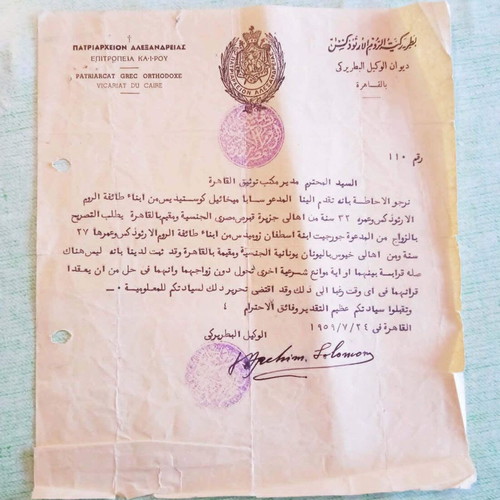 ΠΑΤΡΙΑΡΧΕΙΟΝ ΑΛΕΞΑΝΔΡΕΙΑΣ
ΕΠΙΤΡΟΠΕΙΑ ΚΑ·Ι·ΡΟΥ
PATRIARCAT GREC ORTHODOXE
VICARIAT DU CAIRE
بطريركية الروم الارثوذكسيين
ديوان الوكيل البطريركى
بالقاهرة
رقم ١١٠
السيد المحترم مدير مكتب توثيق القاهرة
نرجو الاحاطة بانه تقدم الينا المدعو سابا ميخائيل كوستنيديس من ابناء طائفة الروم
الارثوذكس وعمره ٣٢ سنة من اهالى جزيرة قبرص مصرى الجنسية ومقيم بالقاهرة يطلب التصريح
بالزواج من المدعوة جورجيت ابنة اسطفان زوميدس من ابناء طائفة الروم الارثوذكس وعمرها ٢٧
سنة ومن اهالى خيوس باليونان يونانية الجنسية ومقيمة بالقاهرة وقد ثبت لدينا بانه ليس هناك
صله قرابة بينهما او اية موانع شرعية اخرى تحول دون زواجهما وانهما فى حل من ان يعقدا
قرانهما فى اى وقت رغبا الى ذلك وقد اقتضى تحرير ذلك لسيادتكم للمعلومية ٠ــ
وتقبلوا سيادتكم عظيم التقدير وفائق الاحترام ،
القاهرة فى ١٩٥٦/٧/٢٤
الوكيل البطريركى
Joachim. Solomon